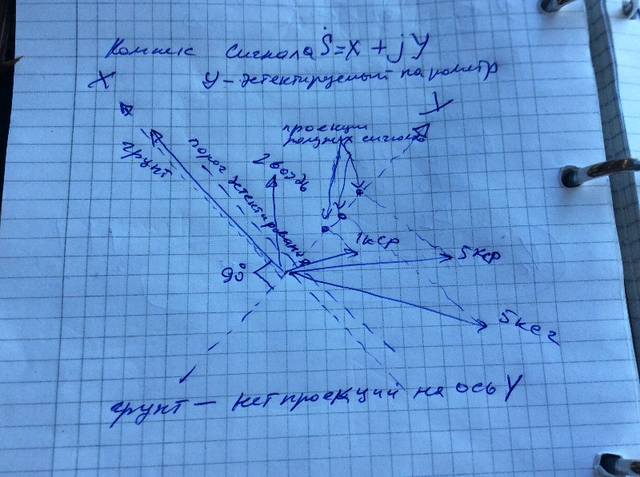 Комплекс сигнала Ṡ=X + jY
Y - детектируемый параметр
X
Y
проекции
полезных сигналов
грунт
порог детектирования
гвоздь
1кср
5кср
5ксг
90°
грунт — нет проекций на ось Y